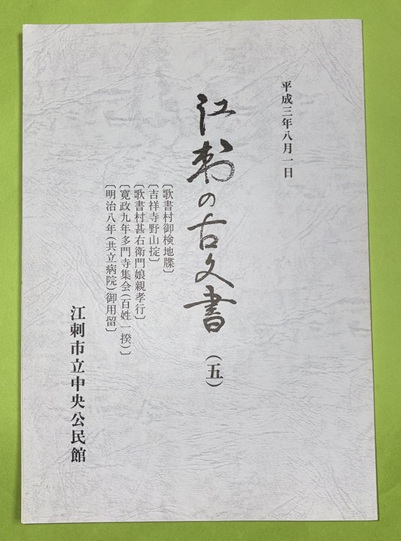 平成三年八月一日
江刺の古文書(五)
〔歌書村御検地牒〕
〔吉祥寺野山掟〕
〔歌書村甚右衛門娘親孝行〕
〔寛政九年多門寺集会(百姓一揆)〕
〔明治八年(共立病院)御用留〕
江刺市立中央公民館